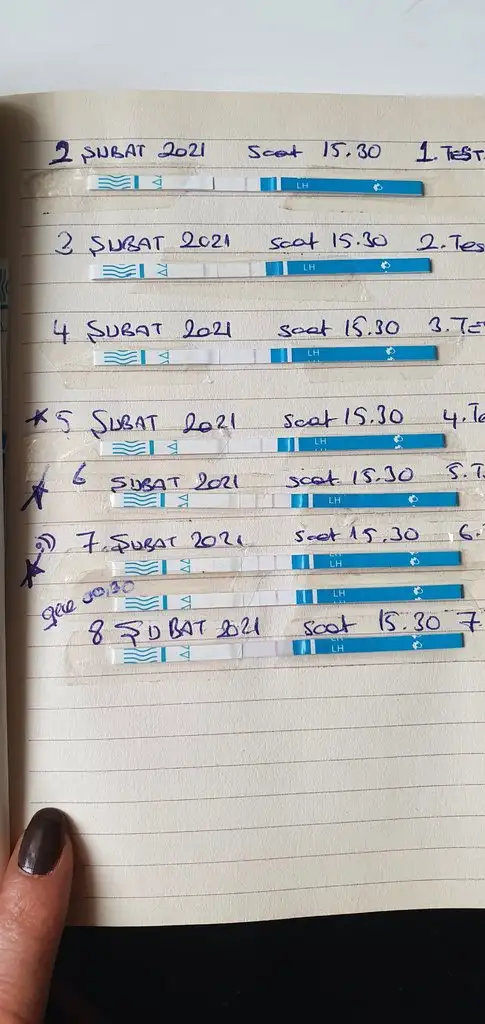 2 ŞUBAT 2021 saat 15.30 1. TEST
LH
3 ŞUBAT 2021 saat 15.30 2. Tes
LH
4 ŞUBAT 2021 saat 15.30 3. Te
LH
5 ŞUBAT 2021 saat 15.30 4. Te
LH
6 ŞUBAT 2021 saat 15.30 5. T
LH
7. ŞUBAT 2021 saat 15.30 6.
LH
gece 00.30
LH
8 ŞUBAT 2021 saat 15.30 7
LH